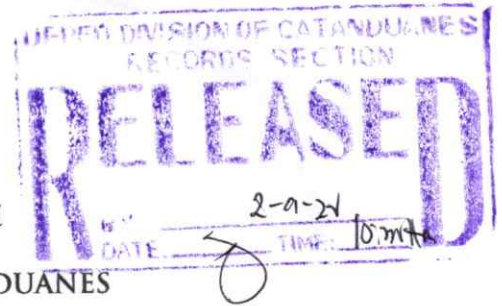 DEPED DIVISION OF CATANDUANES
RECORDS SECTION
RELEASED
BY
DATE TIME:
DUANES